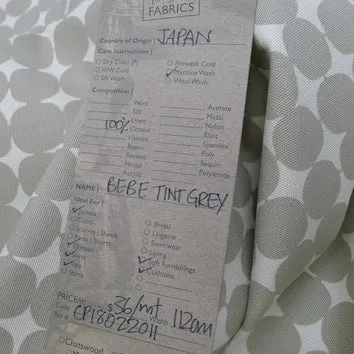 FABRICS
Country of Origin JAPAN
Care Instructions
Dry Clean (P)
Prewash Cold
H/W Cold
Machine Wash
Silk Wash
Wool Wash
Composition
Wool
Acetate
Silk
Metal
Linen
Nylon
100% Cotton
Elast.
Viscose
Spandex
Rayon
Poly
Ramie
Sequin
Modal
Polyamide
Acrylic
NAME BEBE TINT GREY
Ideal For
Bridal
Lingerie
Scarves / Shawls
Swimwear
Lining
Soft Furnishings
Cushions
PRICE/mt $36/mt 112cm
Width
CP18022011
Chatswood